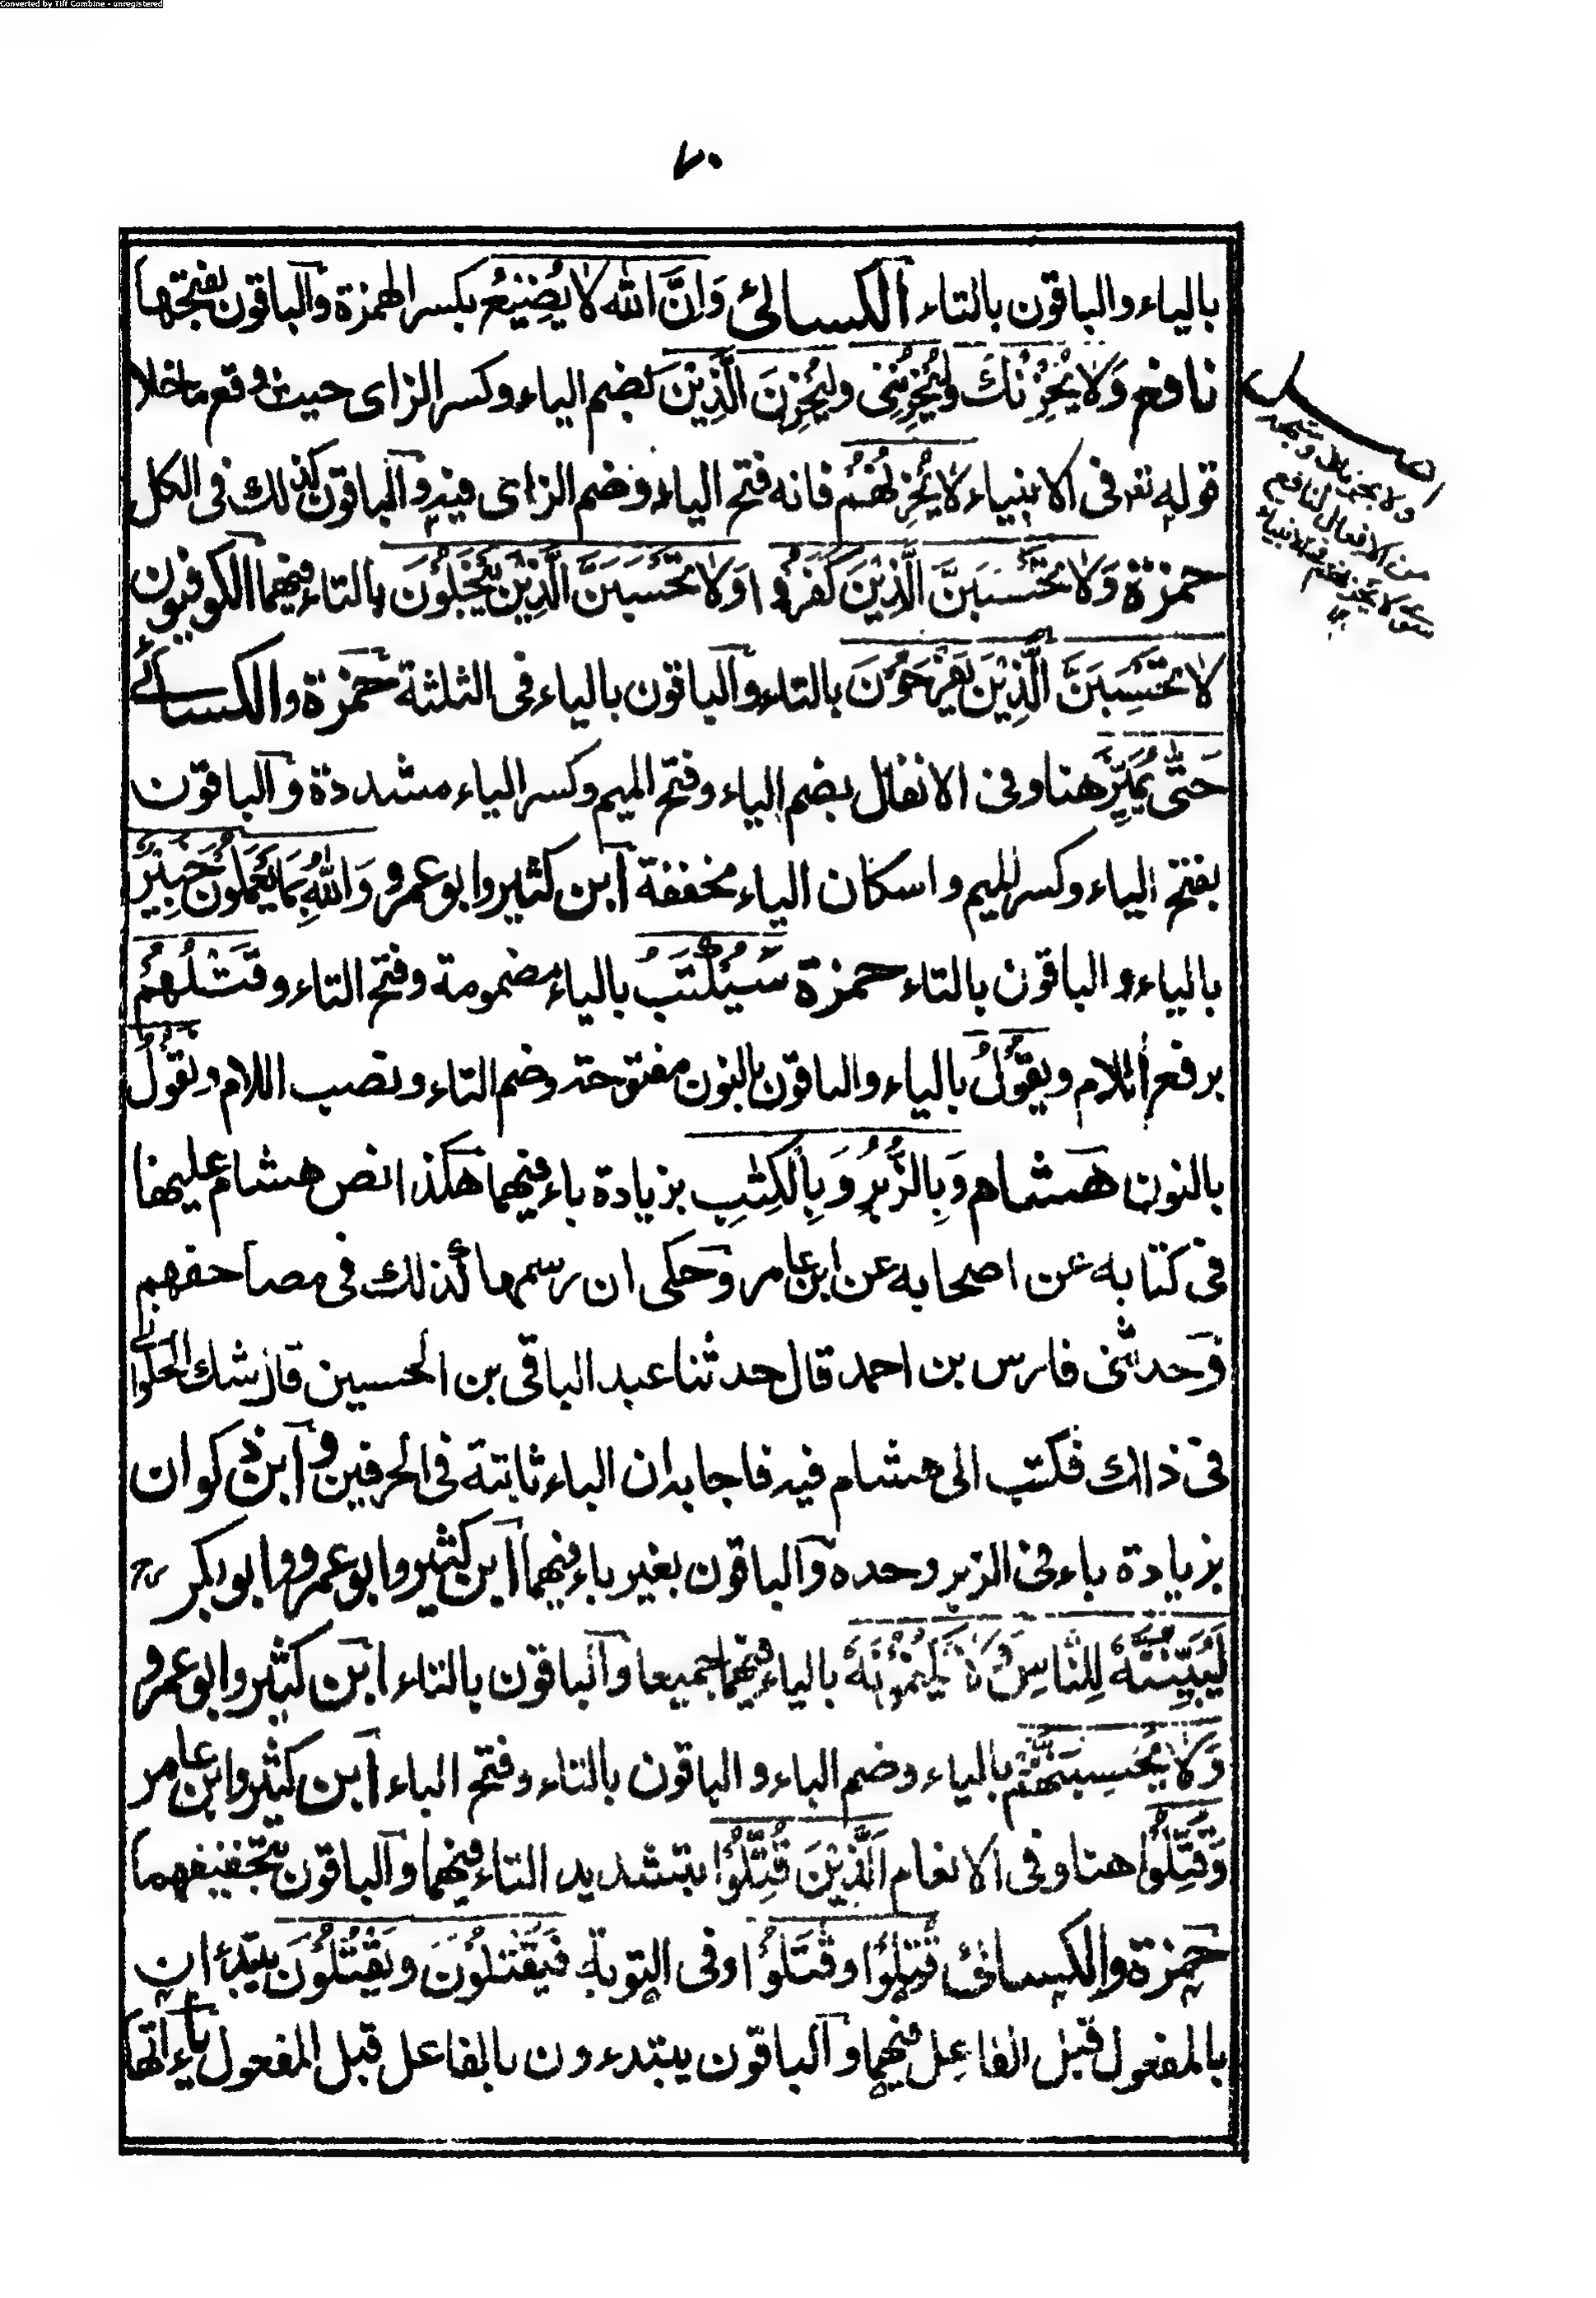 Converted by Tiff Combine - unregistered
٧٠
بالياء والباقون بالتاء الكسائى وَاِنَّ الله لا يُضِيْعُ بكسر الهمزة والباقون بفتحها
نافع وَلا يُحْزِنْكَ ولَيُحْزِنُنِى ولِيُحْزِنَ الَّذِيْنَ بضم الياء وكسر الزاى حيث وقع ما خلا
قوله تعر فى الانبياء لا يَحْزُنُهُمُ فانه فتح الياء وضم الزاى فيه والباقون كذلك فى الكل
حمزة وَلا تَحْسَبَنَّ الَّذِيْنَ كَفَرُوا وَلا تَحْسَبَنَّ الَّذِيْنَ يَبْخَلُوْنَ بالتاء فيهما الكوفيون
لا تَحْسَبَنَّ الَّذِيْنَ يَفْرَحُوْنَ بالتاء والباقون بالياء فى الثلثة حمزة والكسائے
حَتّٰى يُمَيِّزَ هنا وفى الانفال بضم الياء وفتح الميم وكسر الياء مشددة والباقون
بفتح الياء وكسر الميم واسكان الياء مخففة ابن كثير وابو عمرو وَاللهُ بِمَا يَعْمَلُوْنَ خَبِيْرٌ
بالياء والباقون بالتاء حمزة سَيُكْتَبُ بالياء مضمومة وفتح التاء وقَتْلُهُمُ
برفع اللام ويَقُوْلُ بالياء والباقون بالنون مفتوحة وضم التاء ونصب اللام ونَقُوْلُ
بالنون هشام وَبِالزُّبُرِ وَبِالْكِتٰبِ بزيادة باء فيهما هكذا نص هشام عليها
فى كتابه عن اصحابه عن ابن عامر وحكى ان رسمها كذلك فى مصاحفهم
وحدثنى فارس بن احمد قال حدثنا عبد الباقى بن الحسين قال شك الحلوانے
فى ذالك فكتب الى هشام فيه فاجابه ان الباء ثابتة فى الحرفين وابن ذكوان
بزيادة باء فى الزبر وحده والباقون بغير باء فيهما ابن كثير وابو عمرو وابو بكر
لَيُبَيِّنُنَّهٗ لِلنَّاسِ وَلا يَكْتُمُوْنَهٗ بالياء فيهما جميعا والباقون بالتاء ابن كثير وابو عمرو
وَلا يَحْسِبَنَّهُمْ بالياء وضم الباء والباقون بالتاء وفتح الباء ابن كثير وابن عامر
وَقُتِّلُوْا هنا وفى الانعام الَّذِيْنَ قُتِّلُوْا بتشديد التاء فيهما والباقون بتخفيفهما
حمزة والكسائى قُتِلُوْا وقَتَلُوْا وفى التوبة فَيُقْتَلُوْنَ ويَقْتُلُوْنَ يبتدءان
بالمفعول قبل الفاعل فيهما والباقون يبتدءون بالفاعل قبل المفعول ياءاتها